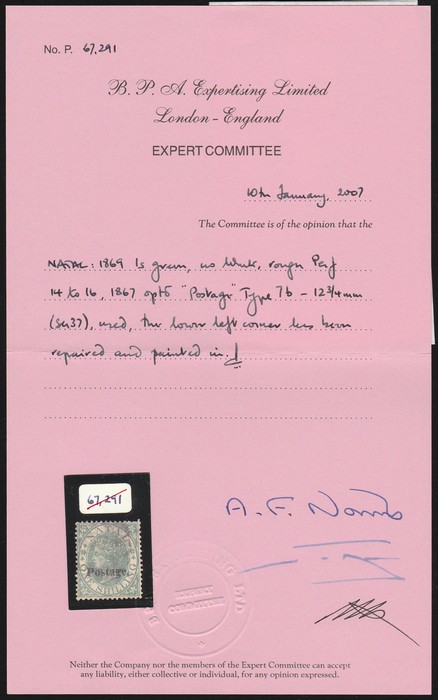 No. P. 67,291
B. P. A. Expertising Limited
London - England
EXPERT COMMITTEE
10th January, 2007
The Committee is of the opinion that the
NATAL: 1869 1s green, no Wmk, rough Perf
14 to 16, 1867 optd "Postage" Type 7b - 12¾mm
(SG37), used, the lower left corner has been
repaired and painted in.
67,291
NATAL
Postage.
ONE SHILLING
EXPERT
COMMITTEE
A. F. Norris
Neither the Company nor the members of the Expert Committee can accept
any liability, either collective or individual, for any opinion expressed.